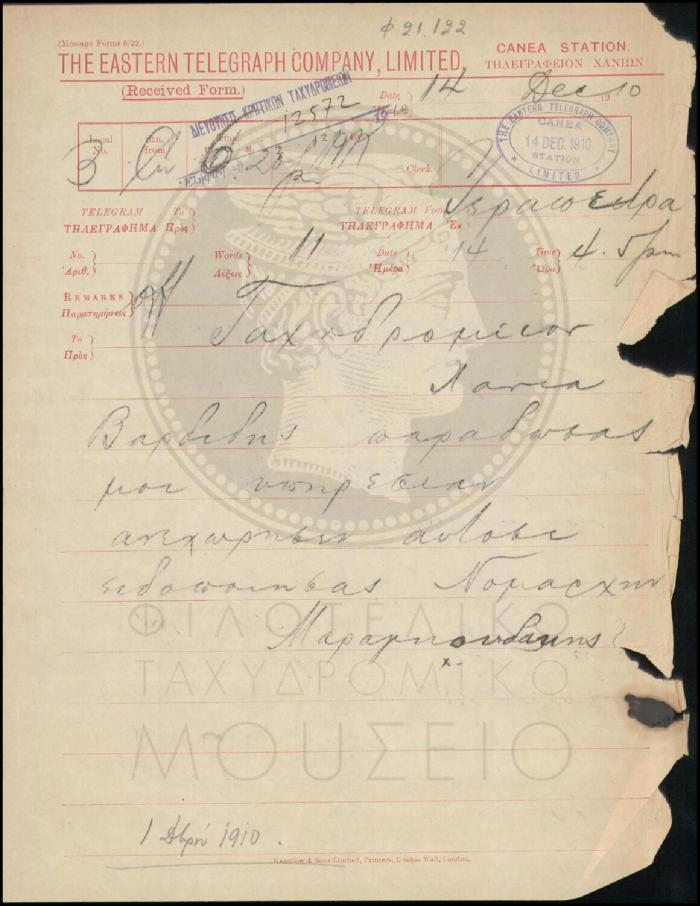 φ 21.122
(Message Forms 6/22.)
THE EASTERN TELEGRAPH COMPANY, LIMITED.
CANEA STATION.
ΤΗΛΕΓΡΑΦΕΙΟΝ ΧΑΝΙΩΝ
(Received Form.)
Date 14 Dec 1910
ΔΙΕΥΘΥΝΣΙΣ ΚΡΗΤΙΚΩΝ ΤΑΧΥΔΡΟΜΕΙΩΝ
12572
THE EASTERN TELEGRAPH COMPANY
CANEA
14 DEC. 1910
STATION
LIMITED
Local No. 3
Stn. from
6 23
Clerk.
TELEGRAM To
ΤΗΛΕΓΡΑΦΗΜΑ Πρὸς
TELEGRAM From
ΤΗΛΕΓΡΑΦΗΜΑ Ἐκ
Ιεραπετρα
No.
Ἀριθ.
Words 11
Λέξεις
Date 14
Ἡμέρα
Time 4.5 pm
Ὥρα
REMARKS
Παρατηρήσεις
Ταχυδρομειον
To
Πρὸς
Χανια
παραδωσας
μοι υπηρεσιαν
ανεχωρησεν αυτοσε
ειδοποιησας Νομαρχην
ΦΙΛΟΤΕΛΙΚΟ
ΤΑΧΥΔΡΟΜΙΚΟ
ΜΟΥΣΕΙΟ
1 1910.
Waterlow & Sons Limited, Printers, London Wall, London.